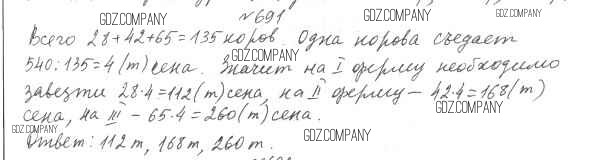 №691
Всего 28+42+65=135 коров. Одна корова съедает
540:135=4 (т) сена. Значит на I ферму необходимо
завезти 28·4=112(т) сена, на II ферму – 42·4=168(т)
сена, на III – 65·4=260(т) сена.
Ответ: 112 т, 168 т, 260 т.
GDZ.COMPANY
GDZ.COMPANY
GDZ.COMPANY
GDZ.COMPANY
GDZ.COMPANY
GDZ.COMPANY